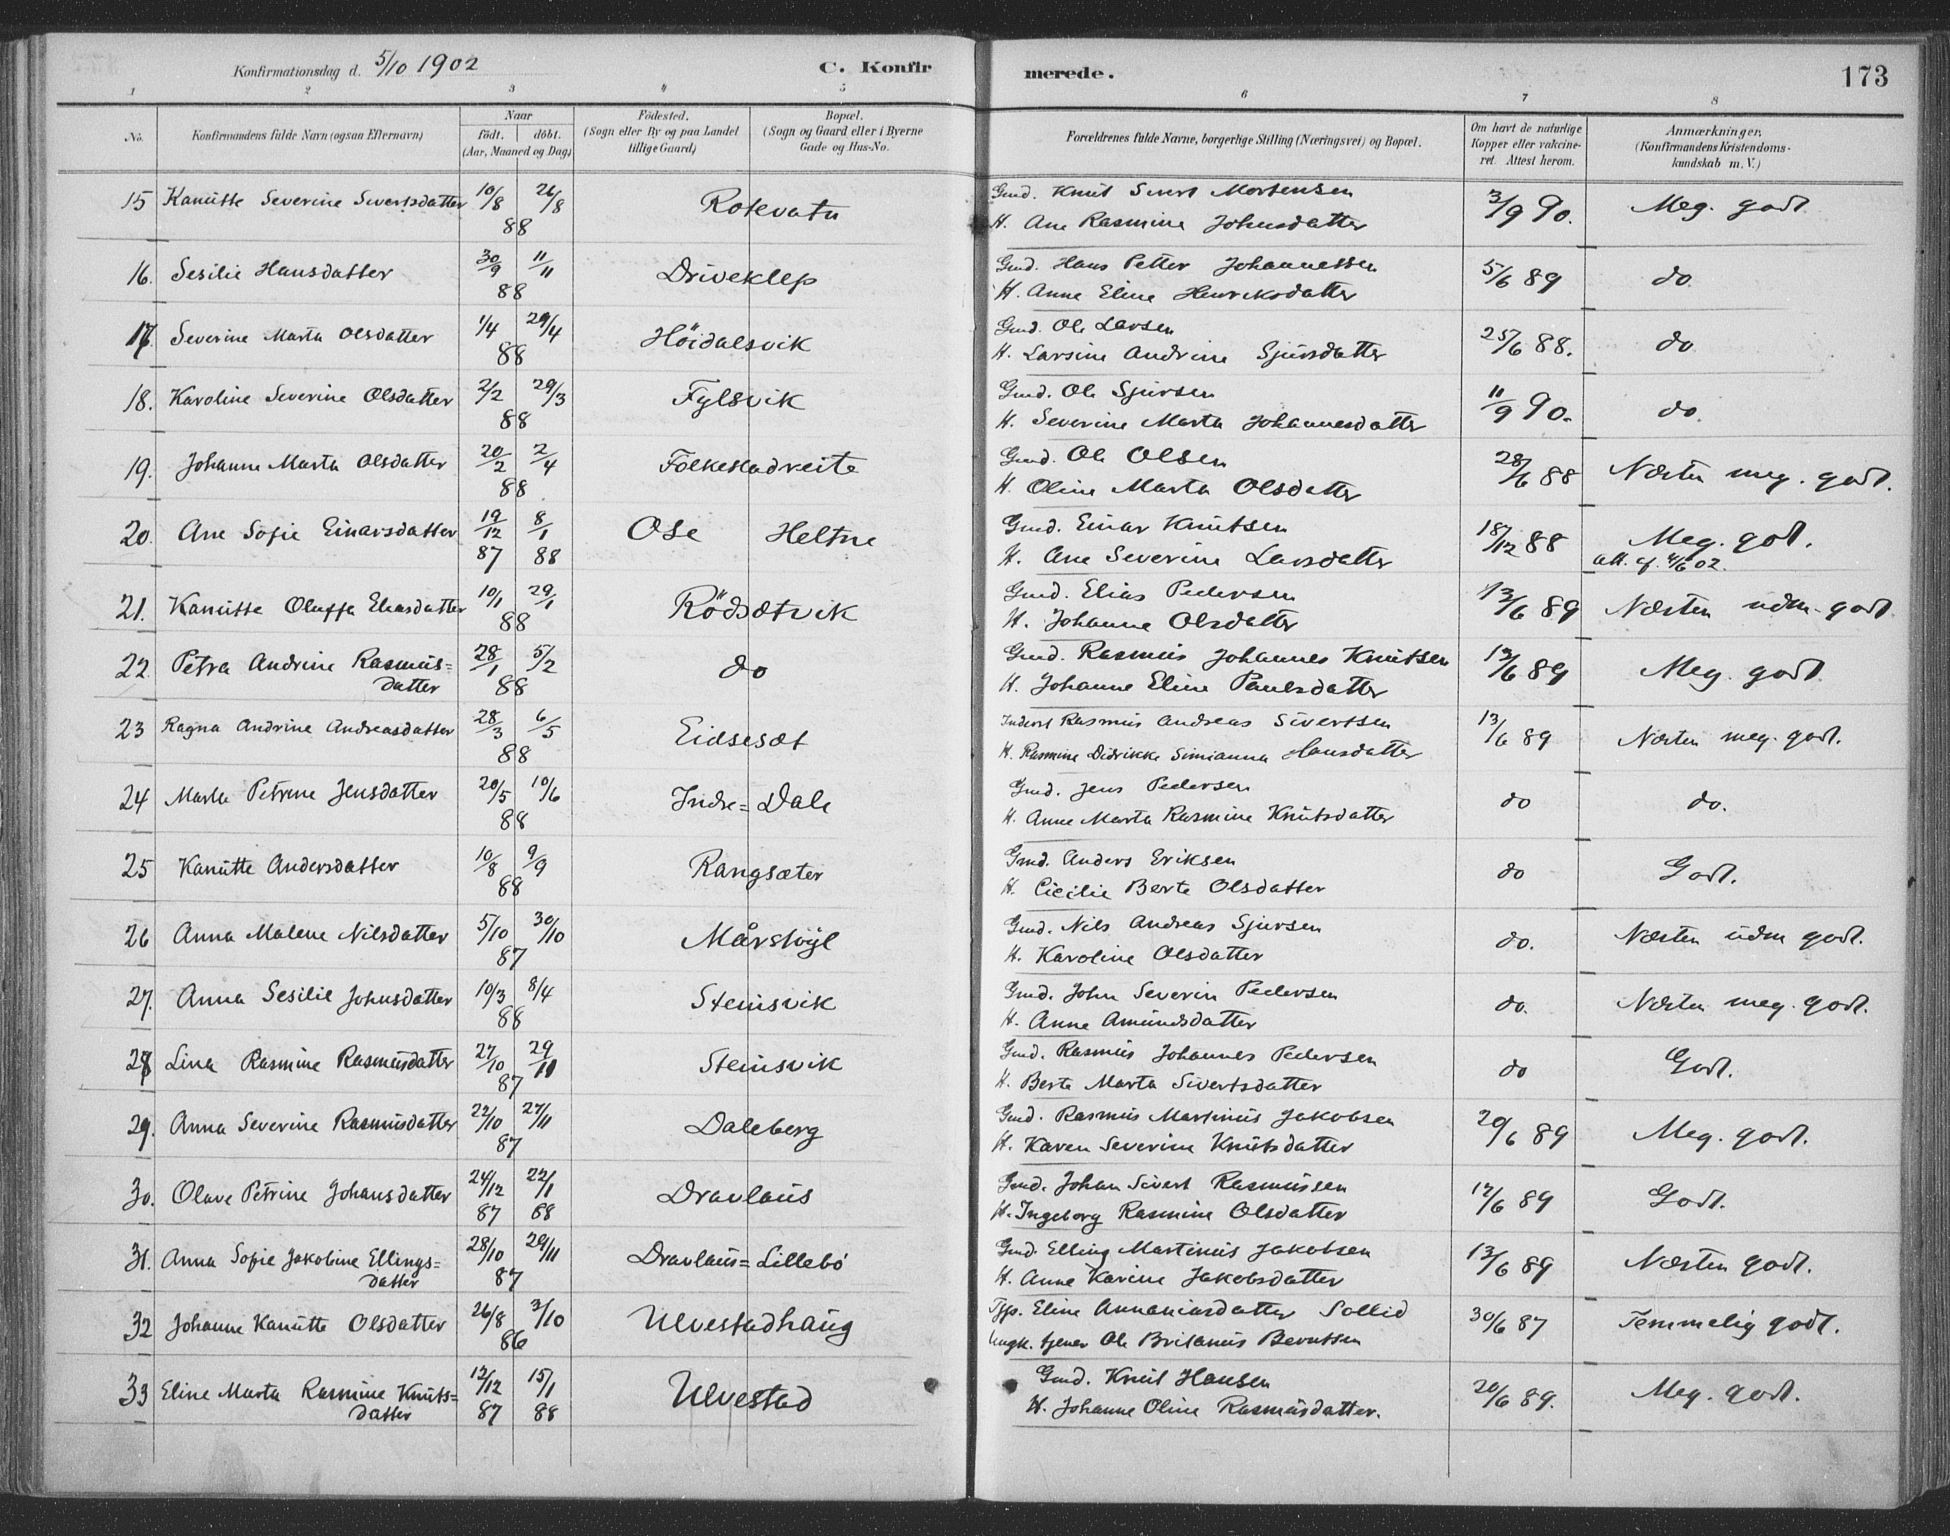 Konfirmationsdag d. 5/10 1902
C. Konfirmerede.
173
1 2 3 4 5 6 7 8
No.
Konfirmandens fulde Navn (ogsaa Efternavn)
Naar
födt. döbt.
(Aar, Maaned og Dag)
Födested.
(Sogn eller By og paa Landet
tillige Gaard)
Bopæl.
(Sogn og Gaard eller i Byerne
Gade og Hus-No.
Forældrenes fulde Navne, borgerlige Stilling (Næringsvei) og Bopæl.
Om havt de naturlige
Kopper eller vakcine-
ret. Attest herom.
Anmærkninger.
(Konfirmandens Kristendoms-
kundskab m. V.)
15 Kanutte Severine Sivertsdatter 10/8 26/8 88 Rotevatn Gmd. Knut Sivert Mortensen 3/9 90. Meg. godt
H. Ane Rasmine Johnsdatter
16. Sesilie Hansdatter 30/9 11/11 88 Driveklep Gmd. Hans Petter Johannessen 5/6 89 do.
H. Anne Eline Henriksdatter
17. Severine Marta Olsdatter 1/4 29/4 88 Höidalsvik Gmd. Ole Larsen 25/6 88. do
H. Larsine Andrine Sjursdatter
18. Karoline Severine Olsdatter 2/2 29/3 88 Fylsvik Gmd. Ole Sjursen 11/9 90. do.
H. Severine Marta Johannesdatter
19. Johanne Marta Olsdatter 20/2 2/4 88 Folkestadreite Gmd. Ole Olsen 28/6 88 Næsten meg. godt.
H. Oline Marta Olsdatter
20. Ane Sofie Einarsdatter 19/12 87 8/1 88 Ose Heltne Gmd. Einar Knutsen 18/12 88 Meg. godt.
H. Ane Severine Larsdatter att. af 4/6 02.
21. Kanutte Oluffa Eliasdatter 10/1 29/1 88 Rödsætvik Gmd. Elias Pedersen 13/6 89 Næsten udm. godt
H. Johanne Olsdatter
22. Petra Andrine Rasmus=
datter 28/1 5/2 88 do Gmd. Rasmus Johannes Knutsen 13/6 89 Meg. godt
H. Johanne Eline Paulsdatter
23 Ragna Andrine Andreasdatter 28/3 6/5 88 Eidsesæt Inderst Rasmus Andreas Sivertsen 13/6 89 Næsten meg. godt.
H. Rasmine Didrikke Simianna Hansdatter
24 Marta Petrine Jensdatter 20/5 10/6 88 Indre=Dale Gmd. Jens Pedersen do do.
H. Anne Marta Rasmine Knutsdatter
25 Kanutte Andersdatter 10/8 9/9 88 Rangsæter Gmd. Anders Eriksen do Godt.
H. Cicilie Berte Olsdatter
26 Anna Malene Nilsdatter 5/10 30/10 87 Mårstöyl Gmd. Nils Andreas Sjursen do. Næsten udm godt.
H. Karoline Olsdatter
27. Anna Sesilie Johnsdatter 10/3 8/4 88 Steinsvik Gmd. John Severin Pedersen do. Næsten meg. godt.
H. Anne Amundsdatter
28 Lina Rasmine Rasmusdatter 27/10 29/11 87 Steinsvik Gmd. Rasmus Johannes Pedersen do Godt.
H. Berte Marta Sivertsdatter
29. Anna Severine Rasmusdatter 22/10 27/11 87 Daleberg Gmd. Rasmus Martinus Jakobsen 20/6 89 Meg. godt.
H. Karen Severine Knutsdatter
30. Olave Petrine Johansdatter 24/12 87 22/1 88 Dravlaus Gmd. Johan Sivert Rasmussen 12/6 89 Godt.
H. Ingeborg Rasmine Olsdatter
31. Anna Sofie Jakobine Ellings=
datter 28/10 29/11 87 Dravlaus=Lillebö Gmd. Elling Martinus Jakobsen 13/6 89 Næsten godt.
H. Anne Karine Jakobsdatter
32 Johanne Kanutte Olsdatter 26/8 3/10 86 Ulvestadhaug Tjp. Eline Annaniasdatter Sollid 30/6 87 Temmelig godt.
Ungk. tjener Ole Britanus Berntsen
33 Eline Marta Rasmine Knuts=
datter 12/12 87 15/1 88 Ulvestad Gmd. Knut Hansen 20/6 89. Meg. godt.
H. Johanne Oline Rasmusdatter.